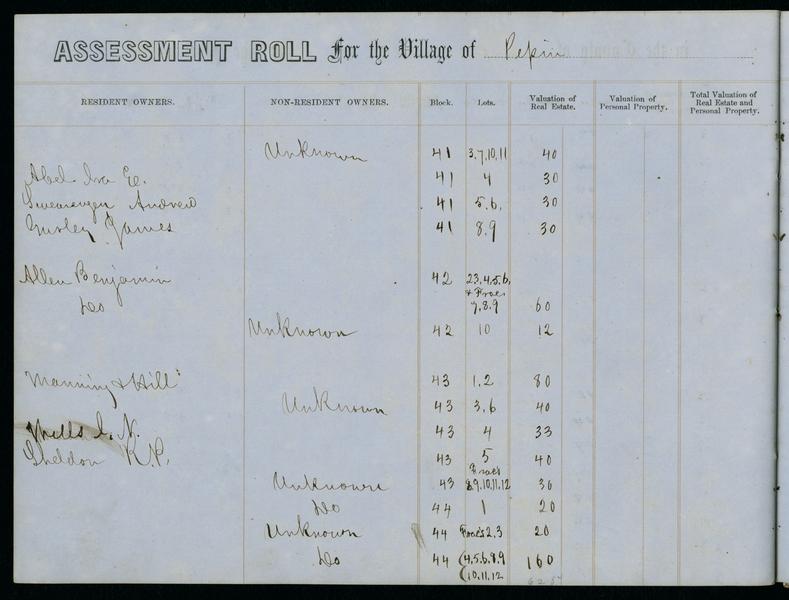 ASSESSMENT ROLL For the Village of Pepin
RESIDENT OWNERS. NON-RESIDENT OWNERS. Block. Lots. Valuation of Real Estate. Valuation of Personal Property. Total Valuation of Real Estate and Personal Property.
Unknown 41 3,7,10,11 40
Abel Ira E. 41 4 30
Swearengen Andrew 41 5.6. 30
Gurley James 41 8.9 30
Allen Benjamin 42 2,3,4,5,6,
& Fracs
Do 7,8,9 60
Unknown 42 10 12
Manning & Hill 43 1,2 80
Unknown 43 3,6 40
Mills I. N. 43 4 33
Sheldon R.P. 43 5 40
Fracs
Unknown 43 8,9,10,11,12 30
Do 44 1 20
Unknown 44 Fracs 2,3 20
Do 44 (4,5,6,8,9 160
(10,11,12